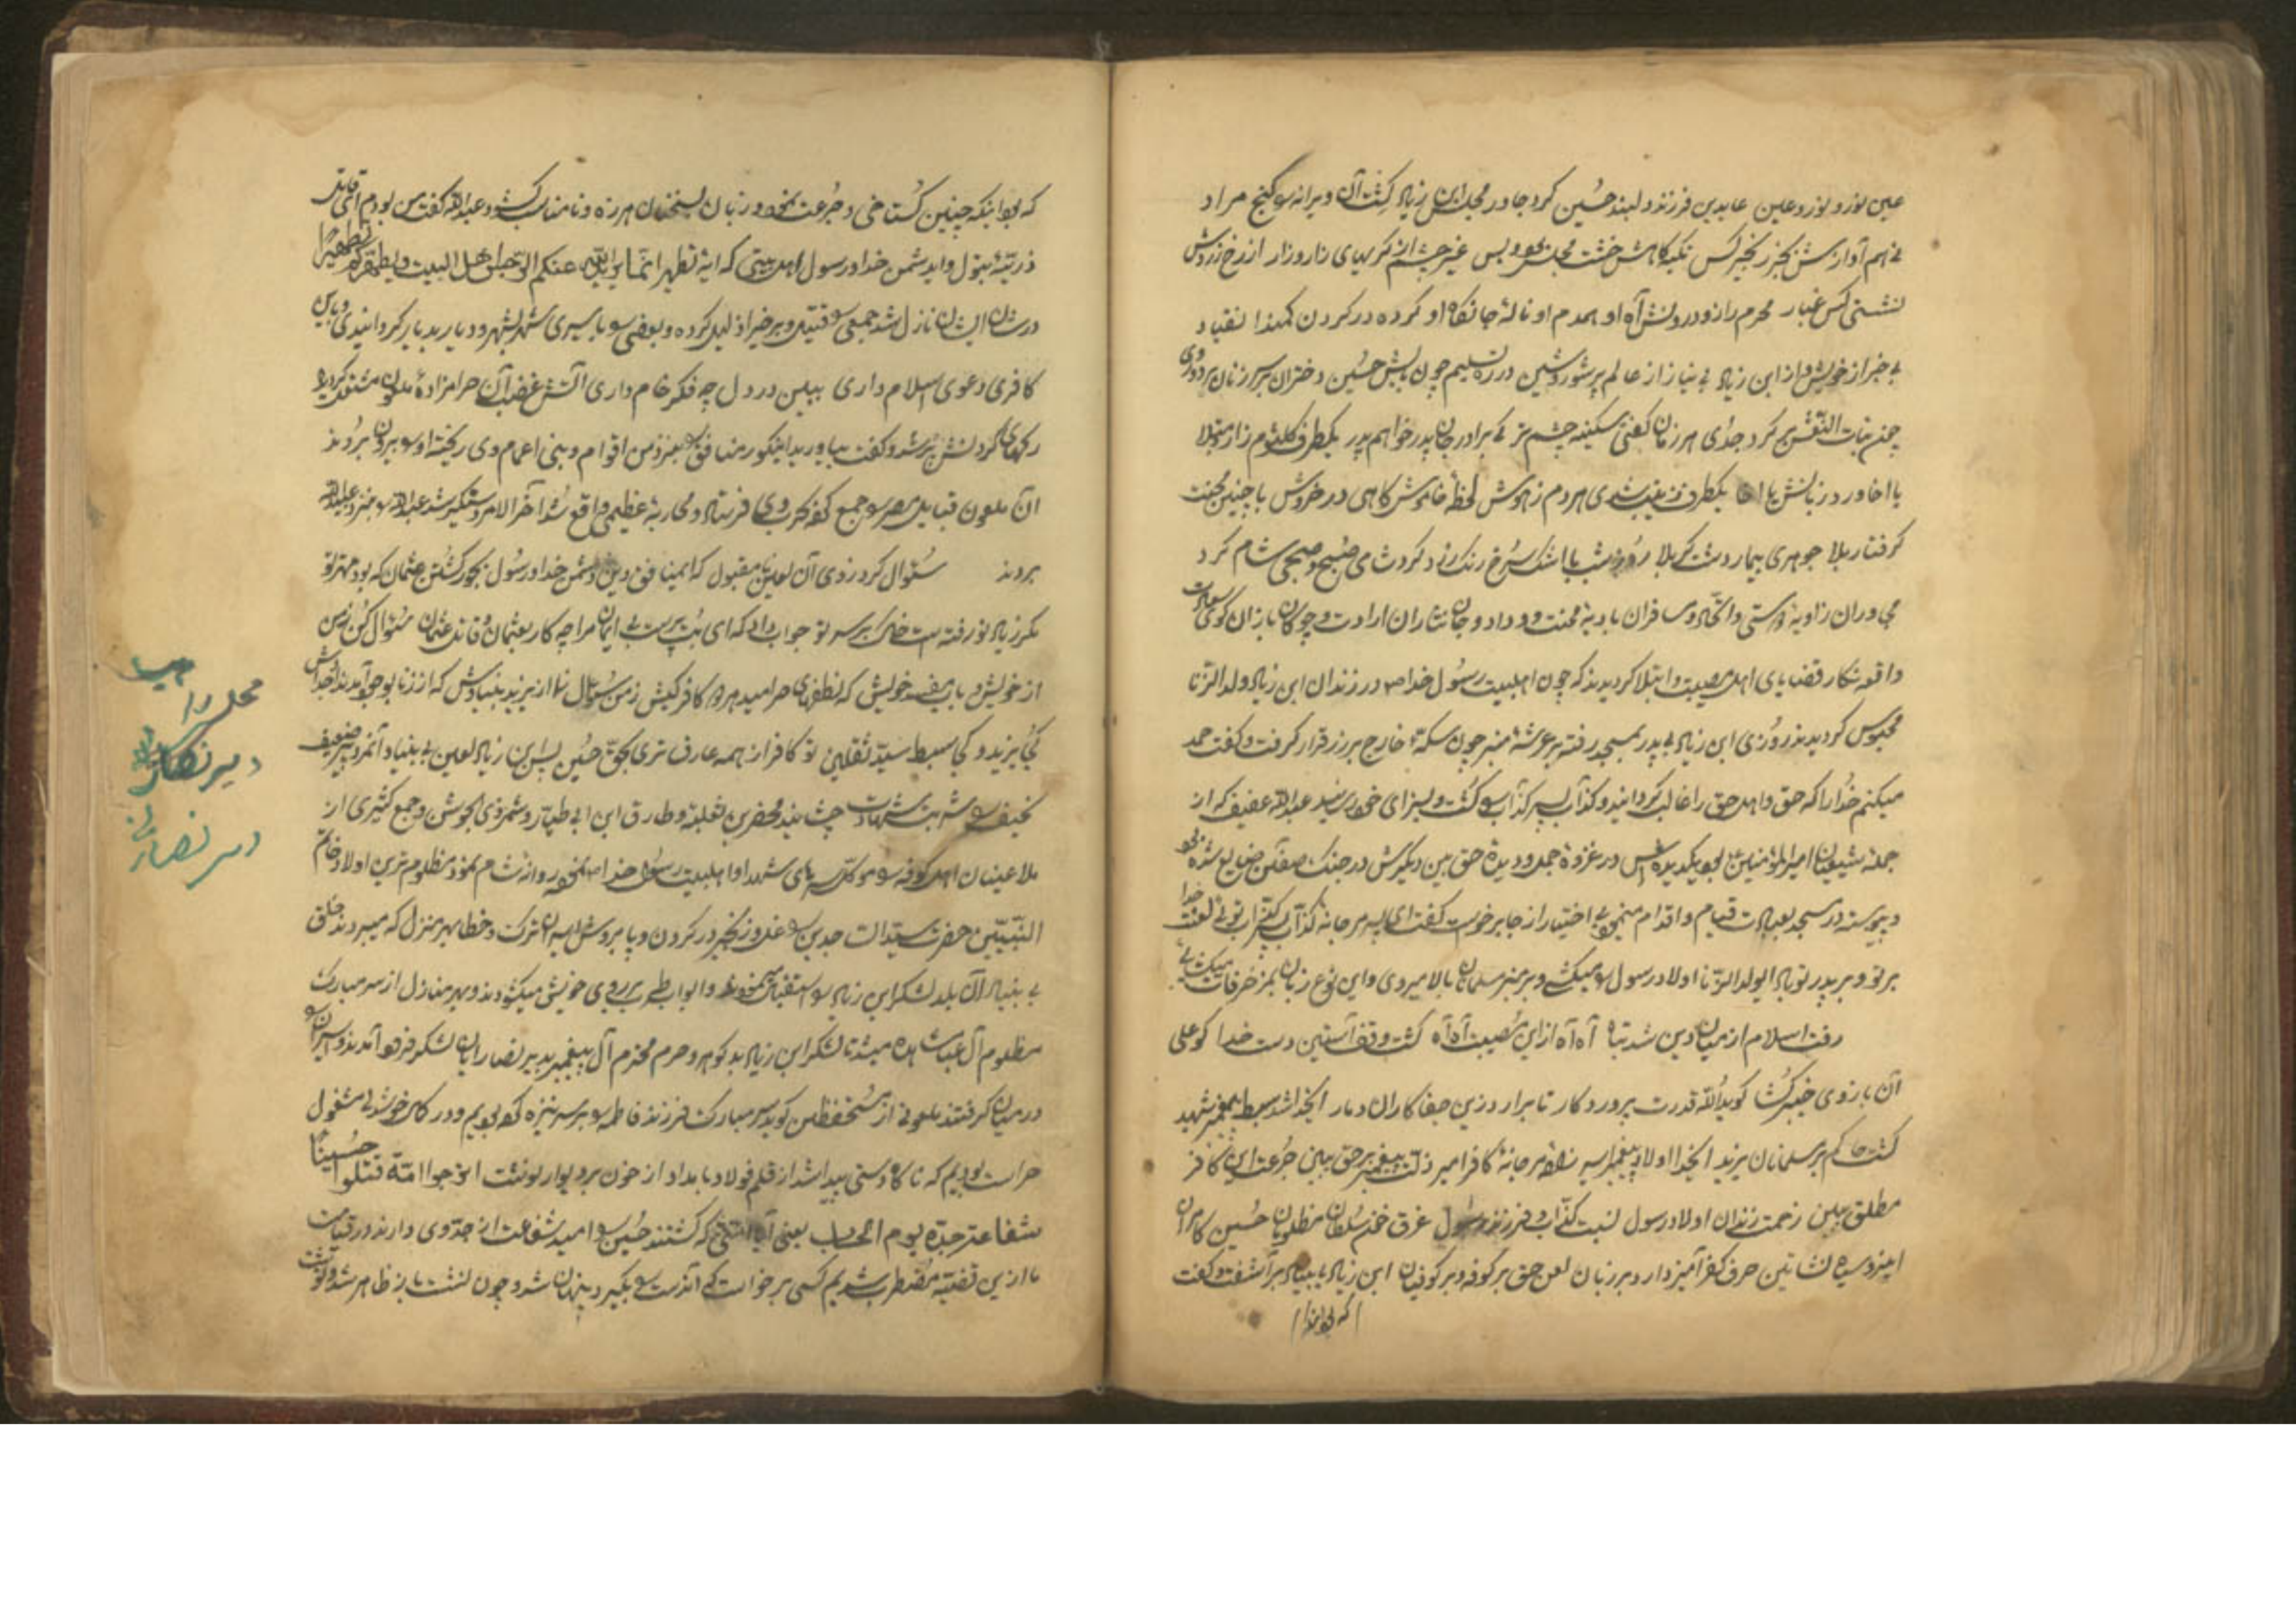 عین نور و نور و عین عابدین فرزند دلبند حسین کرد جا در مجلس ابن زیاد گشت آن ویرانه را گنج مراد
آوازش بجز زنجیر کس تکیه گاهش خشت مجلس بود و بس غیر چشم از گریهای زار زار از رخ زردش
نشستی کس غبار محرم راز درونش آه او همدم او نالهٔ جانکاه او کرده در گردن کمند انقیاد
بی خبر از خویش و از ابن زیاد بی نیاز از عالم پر شور و شین در ره تسلیم چون بابش حسین دختران سر زنان
چون بنات النعش بر گرد جدی هر زمان گفتی سکینه چشم تر کی برادر جان پدر خواهم پدر یکطرف کلثوم زار مبتلا
با اخا ورد زبانش یا اخا یکطرف زینب شدی هر دم ز هوش لحظهٔ خاموش گاهی در خروش با چنین محنت
گرفتار بلا جوهری بیمار دشت کربلا روز و شب با اشک سرخ و رنگ زرد کرد شامی صبح و صبحی شام کرد
مجاوران زاویهٔ راستی و اتحاد و مسافران بادیهٔ محنت و وداد و جان نثاران ارادت و چوگان بازان گوی سعادت
واقعه نگار قضایای اهل مصیبت و ابتلا گردیدند که چون اهلبیت رسول خدا ص در زندان ابن زیاد ولد الزنا
محبوس گردیدند روزی ابن زیاد بی پدر بمسجد رفته بر عرشهٔ منبر چون سکهٔ خارج بر زر قرار گرفت و گفت حمد
میکنم خدا را که حق و اهل حق را غالب گردانید و کذاب پسر کذاب را کشت و بسزای خود رسانید عبدالله عفیف که از
جملهٔ شیعیان امیرالمؤمنین بود یکدیده اش در غزوهٔ جمل و دیدهٔ حق بین دیگرش در جنگ صفین ضایع شده بود
و پیوسته در مسجد بعبادت قیام و اقدام مینمود بی اختیار از جا برخواست گفت ای پسر مرجانه کذاب تر تویی لعنت خدا
بر تو و بر پدر تو باد ای ولد الزنا اولاد رسول را میکشی و بر منبر مسلمانان بالا میروی و این نوع زبان بمزخرفات میگشایی
رفت اسلام از میان دین شد تباه آه آه از این مصیبت آه آه گشت وقف آستین دست خدا کو علی
آن بازوی خیبر گشا کو ید الله قدرت پروردگار تا برارد زین جفا کاران دمار ایخدا شد سبط پیغمبر شهید
گشت حاکم بر مسلمانان یزید ایخدا اولاد پیغمبر اسیر زادهٔ مرجانهٔ کافر امیر ذلت پیغمبر بر حق ببین جرعت این کافر
مطلق ببین زحمت زندان اولاد رسول نسبت کذاب و فرزند رسول غرق خون سلطان مظلومان حسین کامران
این روسیاه نشاتین حرف کفر آمیز دارد بر زبان لعن حق بر کوفه و بر کوفیان ابن زیاد بی بنیاد برآشفت و گفت
که بود اینکه
که بود اینکه چنین گستاخی و جرعت نمود و زبان بسخنان هرزه و نامناسب گشود عبدالله گفت من بودم ای قاتل
ذریهٔ بتول و ای دشمن خدا و رسول اهل بیتی که ایهٔ تطهیر انما یرید الله لیذهب عنکم الرجس اهل البیت و یطهرکم تطهیرا
در شان ایشان نازل شد جمعی را قتیل و برخی را ذلیل کرده و بعضی را باسیری شهر بشهر و دیار بدیار گردانیدی و باین
کافری دعوی اسلام داری ببین در دل چه فکر خام داری آتش غضب آن حرامزادهٔ ملعون مشتعل گردیده
رگهای گردنش پر شد و گفت بیاورید اینکور منافق را بنزد من اقوام و بنی اعمام وی ریخته او را بیرون بردند
آن ملعون قبایل مضر را جمع کرده بر سر وی فرستاد و محاربهٔ عظیمی واقع شد آخر الامر دستگیر شد عبدالله را بنزد عبیدالله
بردند سئوال کرد ز وی آن لعین نامقبول که ایمنافق دین دشمن خدا و رسول بگو ز کشتن عثمان که بود مهتر تو
مگر ز یاد تو رفتست خاک بر سر تو جواب داد که ای بت پرست بی ایمان مرا چه کار بعثمان و قاتل عثمان سئوال کن ز من
از خویش و باب خویش که نطفهای حرامید هر دو کافر کیش ز من سئوال نما از یزید بنیادش که از زنا بوجود آمدند اجدادش
کجا یزید و کجا سبط سید ثقلین تو کافر از همه عارف تری بحق حسین پس ابن زیاد لعین بی بنیاد آنمرد پیر ضعیف
نحیف را شربت شهادت چشانید محضر بن ثعلبه و طارق ابن ابی ظبیان و شمر ذی الجوشن و جمع کثیری از
ملاعینان اهل کوفه را موکل سرهای شهدا و اهلبیت رسول خدا ص نموده روانهٔ شام نمود مظلوم ترین اولاد خاتم
النبیین حضرت سید الساجدین را غل و زنجیر در گردن و پا بروش اسیران ترک و خطا بهر منزل که میبردند خلق
بی بنیاد آن بلد لشکر ابن زیاد را استقبال مینمودند و ابواب طرب بر روی خویش میگشودند و بهر منازل از سر مبارک
مظلوم آل عبا مشاهده میشد تا لشکر ابن زیاد بدگوهر و حرم محترم آل پیغمبر بدیر نصارا با آن لشکر فرود آمدند و اسیران را
در میان گرفتند ملعونی از مستحفظین گوید سر مبارک فرزند فاطمه را بر سر نیزه کرده بودیم و در کمال خوشدلی مشغول
حراست بودیم که ناگاه دستی پیدا شد از قلم فولاد با مداد از خون بر دیوار نوشت اترجوا امة قتلوا حسینا
شفاعة جده یوم الحساب یعنی آیا امتی که کشتند حسین را امید شفاعت از جد وی دارند در قیامت
ما ازین قضیه مضطرب شدیم کسی برخواست که آندست را بگیرد پنهان شد و چون نشست باز ظاهر شد و نوشت
مجلس
دیر نصارا
دیر نصارای